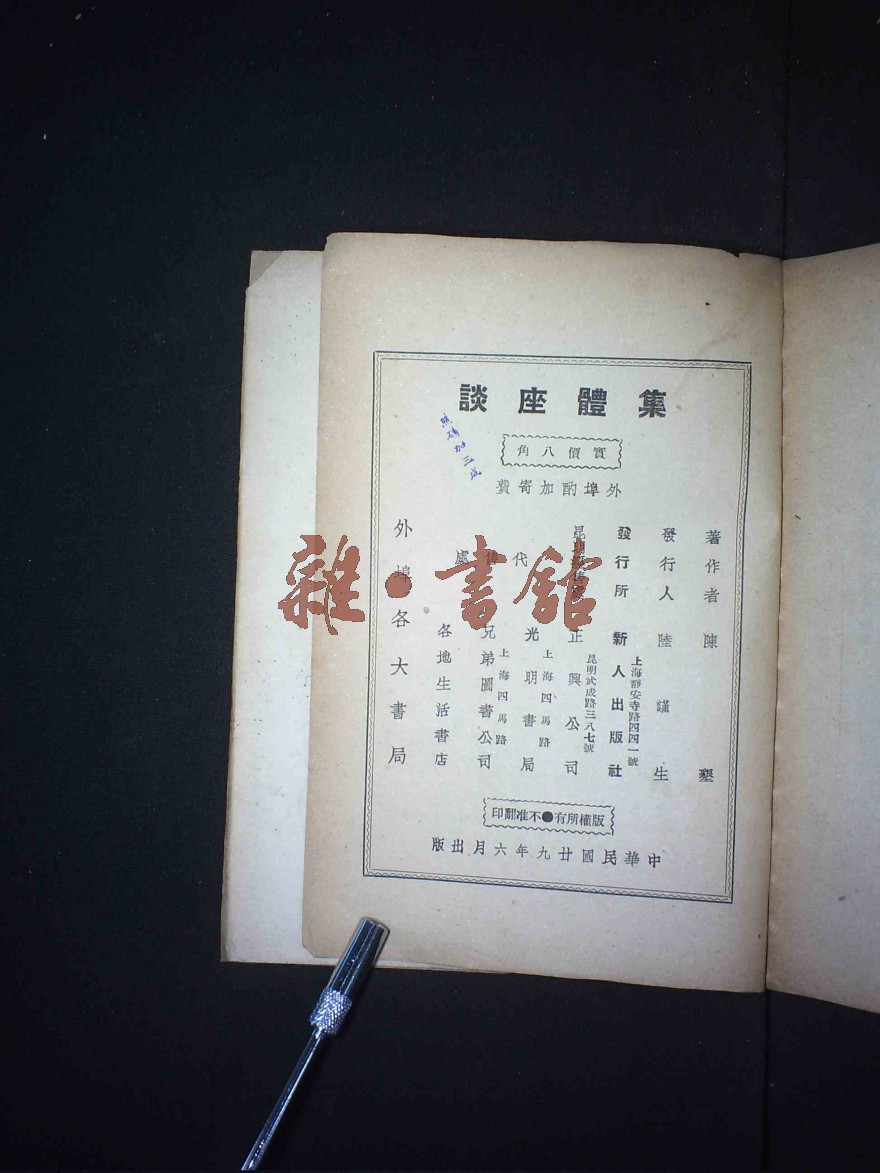 集體座談
實價八角
外埠酌加寄費
著作者 陳墾
發行人 陸謹生
發行所 新人出版社
上海靜安寺路四四一號
正興公司
昆明武成路三八七號
代售處
光明書局
上海四馬路
兄弟圖書公司
上海四馬路
各地生活書店
外埠各大書局
版權所有●不准翻印
中華民國廿九年六月出版
雜·書館